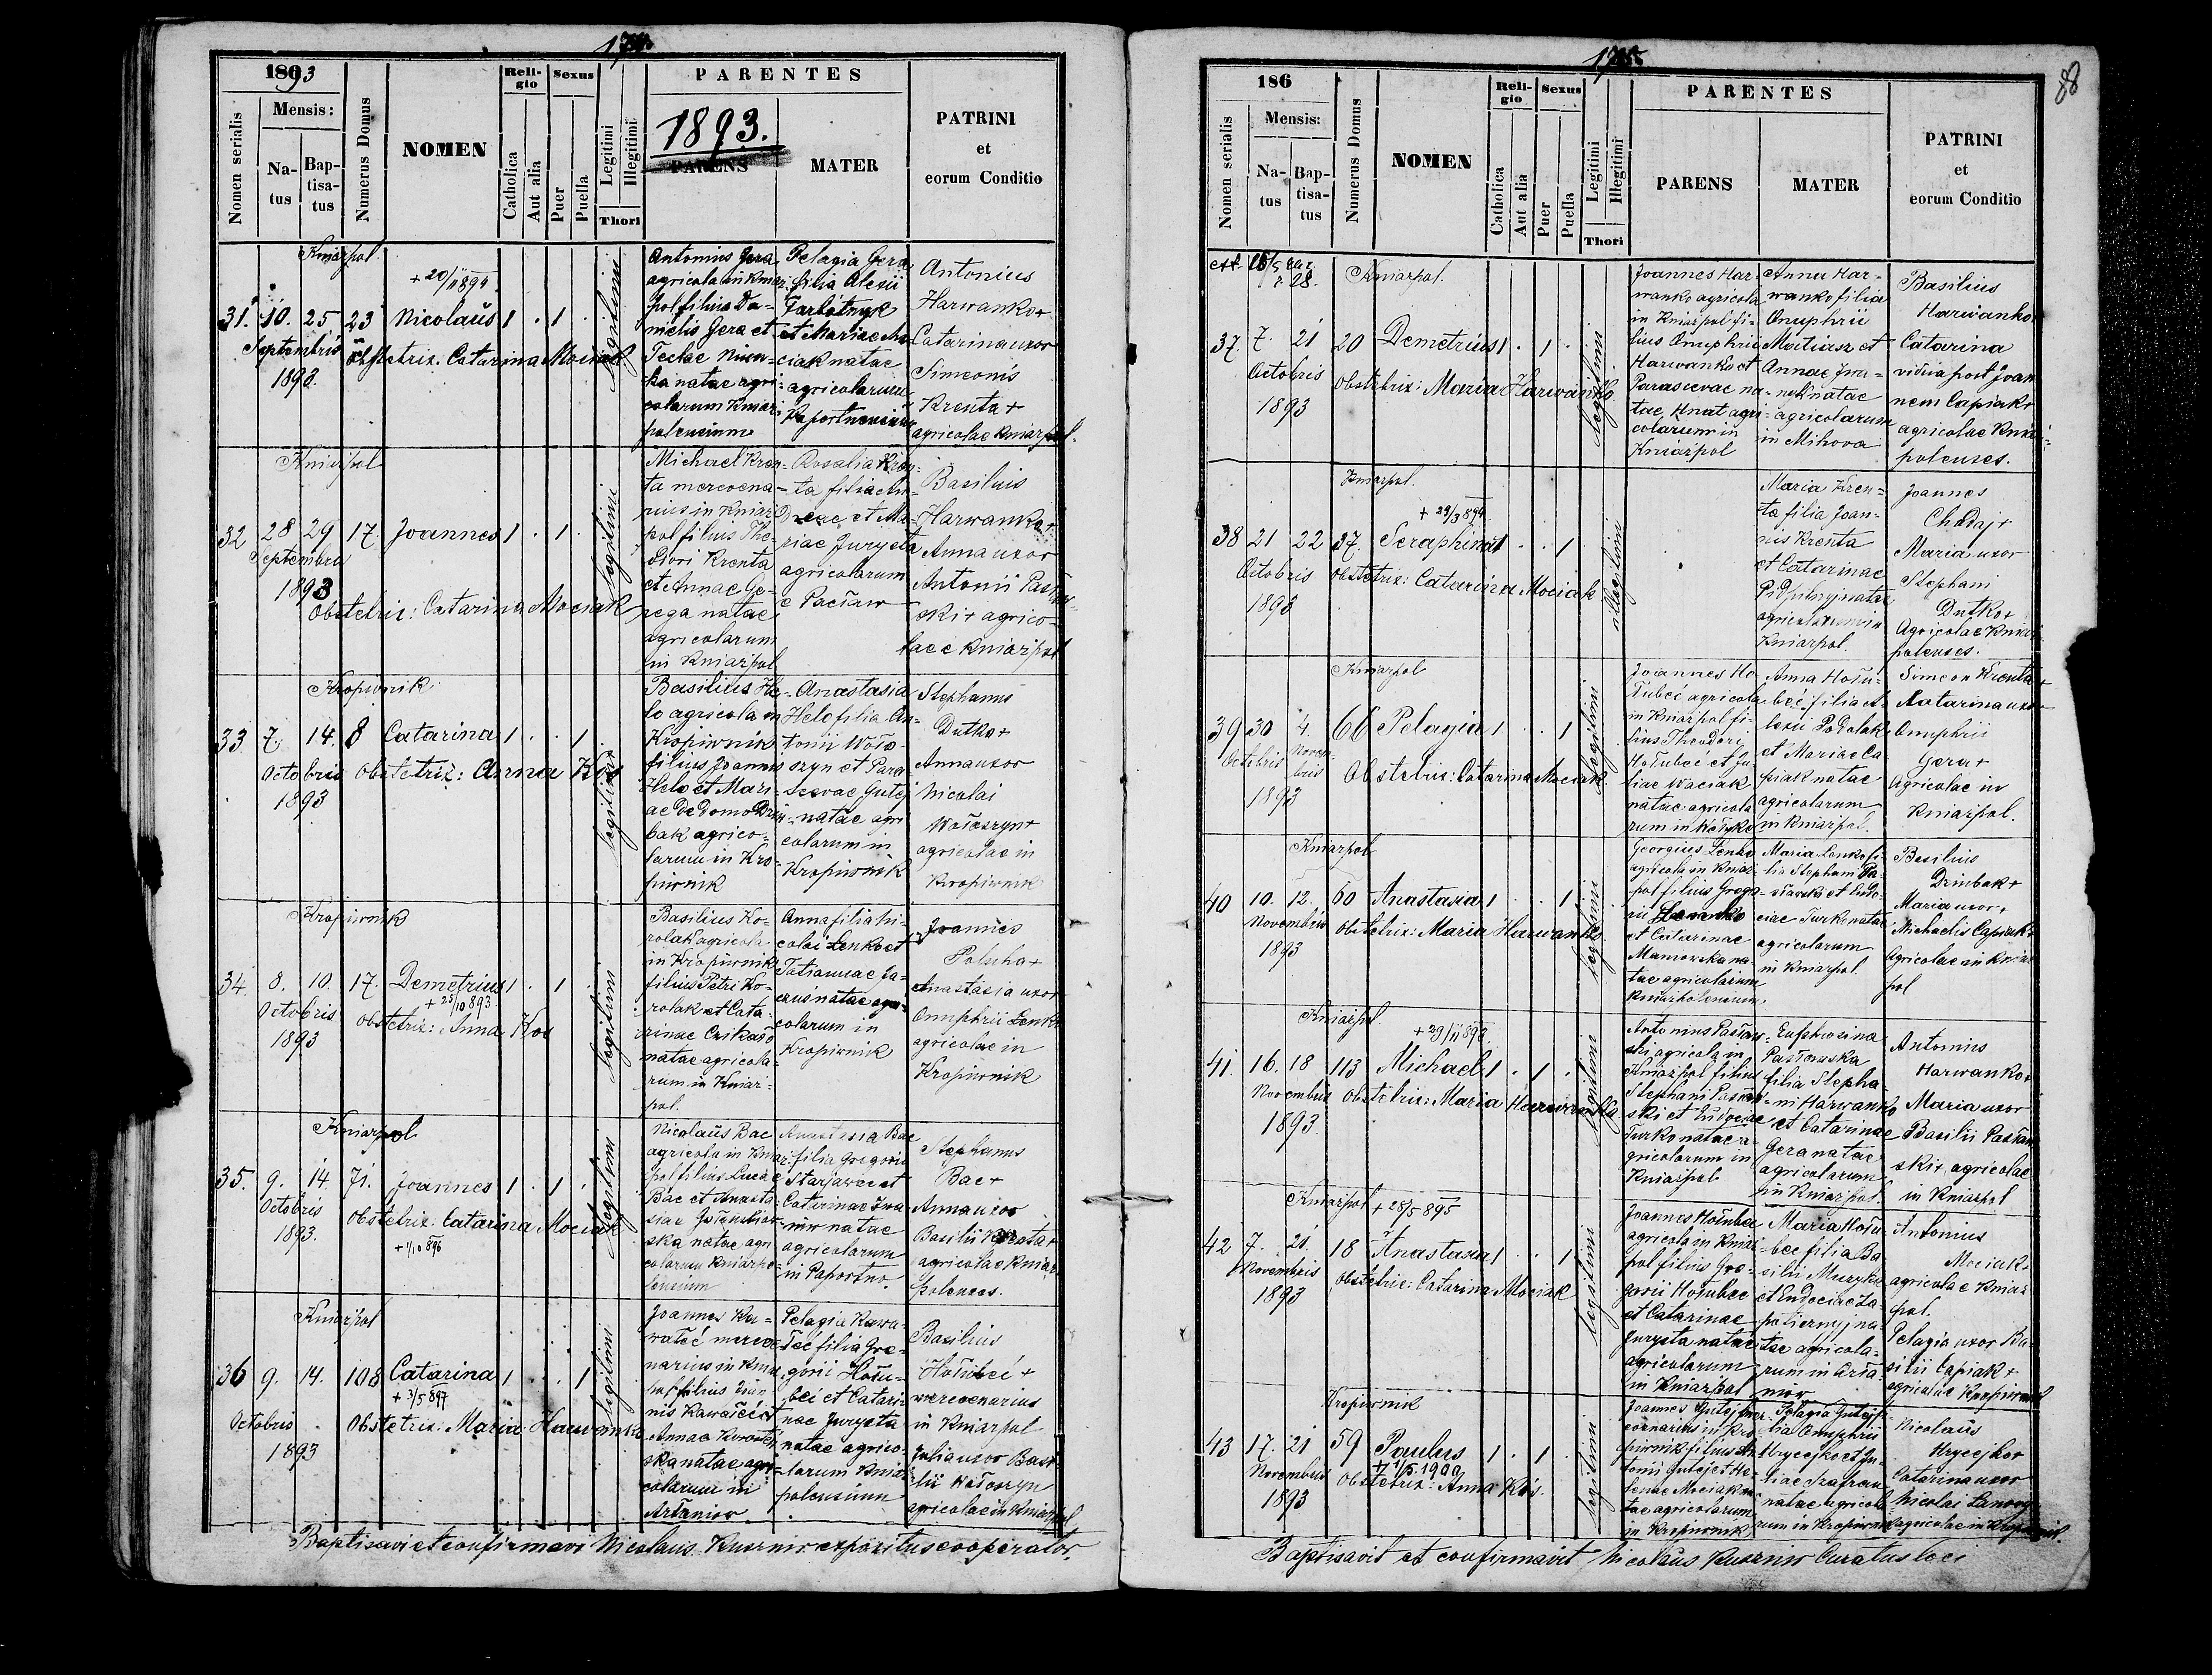 174.
1893
Nomen serialis
Mensis:
Na-
tus
Bap-
tisa-
tus
Numerus Domus
NOMEN
Reli-
gio
Catholica
Aut alia
Sexus
Puer
Puella
Legitimi
Illegitimi
Thori
PARENTES
1893.
PARENS
MATER
PATRINI
et
eorum Conditio
Kniażpol
31. 10. 25. 23 Nicolaus 1 . 1 .
Septembris
1893.
Obstetrix. Catarina Mociak
legitimi
Antonius Gera
agricola in Kniaż-
pol filius Da-
nielis Gera et
Teclae
natae agri-
colarum Kniaż-
polensium
Pelagia Gera
filia Alexii
et Mariae
ciak natae
agricolarum
Antonius
Harwanko+
Catarina uxor
Simeonis
Krenta+
agricolae Kniażpol.
Kniażpol
32 28 29 17. Joannes 1 . 1 .
Septembris
1893
Obstetrix: Catarina Mociak
legitimi
Michael Kren-
ta mercena-
rius in Kniaż-
pol filius The-
odori Krenta
et Annae Ge-
rega natae
agricolarum
in Kniażpol
Rosalia Kren-
ta filia An-
dreae et Ma-
riae Juryeta
agricolarum
e Pacław
Basilius
Harwanko+
Anna uxor
Antonii
ski+ agrico-
lae e Kniażpol
Kropiwnik
33 7. 14. 8 Catarina 1 . . 1
Octobris
1893
Obstetrix: Anna Kos
legitimi
Basilius He-
lo agricola in
Kropiwnik
filius Joannis
Helo et Mari-
ae de domo
bak agrico-
larum in Kro-
piwnik
Anastasia
Helo filia An-
tonii Woło-
szyn et Para-
scevae Gutej
natae agri
colarum in
Kropiwnik
Stephanus
Dutko+
Anna uxor
Nicolai
Wołoszyn+
agricolae in
Kropiwnik
Kropiwnik
34. 8. 10. 17. Demetrius 1 . 1 .
+ 25/10 893
Octobris
1893
Obstetrix: Anna Kos
legitimi
Basilius Ko-
rolak agricola
in Kropiwnik
filius Petri Ko-
rolak et Cata-
rinae
natae agricola-
rum in Kniaż-
pol.
Anna filia Ni-
colai Lenko et
Tatiannae
natae agri-
colarum in
Kropiwnik
Joannes
Polucha+
Anastasia uxor
Onuphrii Lenko
agricolae in
Kropiwnik
Kniażpol
35. 9. 14. 71. Joannes 1 . 1 .
Octobris
1893.
Obstetrix: Catarina Mociak
+ 1/10 896
legitimi
Nicolaus Bac
agricola in Kniaż-
pol filius Lucae
Bac et Anasta-
siae
ska natae agri
colarum Kniażpo-
lensium
Anastasia Bac
filia Gregorii
et
Catarinae Iwa-
niw natae
agricolarum
in Paportno.
Stephanus
Bac+
Anna uxor
Basilii
agricolae Kniaż-
polenses.
Kniażpol
36 9. 14. 108 Catarina 1 . . 1
+ 3/5 897
Octobris
1893
Obstetrix: Maria Harwanko
legitimi
Joannes Ka-
wałeć merce-
narius in Kniaż-
pol filius Joan-
nis Kawałeć et
Annae
ska natae agri-
colarum in
Arłamow.
Pelagia Kawa-
łeć filia Gre-
gorii Hołu-
beć et Catari-
nae Juryeta
natae agrico-
larum Kniaż-
polensium
Basilius
Hołubeć+
mercenarius
in Kniażpol
Julia uxor Basi-
lii Wołoszyn
agricolae in Kniażpol
Baptisavi et confirmavi Nicolaus Kuzniw expositus cooperator.
175.
88
186
Nomen serialis
Mensis:
Na-
tus
Bap-
tisa-
tus
Numerus Domus
NOMEN
Reli-
gio
Catholica
Aut alia
Sexus
Puer
Puella
Legitimi
Illegitimi
Thori
PARENTES
PARENS
MATER
PATRINI
et
eorum Conditio
Kniażpol.
37. 7. 21 20 Demetrius 1 . 1 .
Octobris
1893
Obstetrix: Maria Harwanko
legitimi
Joannes Har-
wanko agricola
in Kniażpol fi-
lius Onuphrii
Harwanko et
Parascevae na-
tae Hnat agri-
colarum in
Kniażpol
Anna Har-
wanko filia
Onuphrii
Matiasz et
Annae Iwa-
nek natae
agricolarum
in Mihowa
Basilius
Harwanko
Catarina
vidua post Joan
nem Capiak+
agricolae Kniaż-
polenses.
Kniażpol.
38 21 22 37. Seraphina 1 . . 1
+ 29/3 894
Octobris
1893
Obstetrix: Catarina Mociak
illegitimi
Maria Kren-
ta filia Joan-
nis Krenta
et Catarinae
natae
agricolarum in
Kniażpol.
Joannes
Chudaj+
Maria uxor
Stephani
Dutko+
Agricolae Kniaż-
polenses.
Kniażpol
39 30 4. 66 Pelagia 1 . . 1
Octobris Novem-
bris
1893
Obstetrix: Catarina Mociak
legitimi
Joannes Ho
łubeć agricola
in Kniażpol fi-
lius Theodori
Hołubeć et Ju-
liae Waciak
natae agricola
rum in
Anna Hołu-
beć filia A-
lexii Podolak
et Mariae Ca
piak natae
agricolarum
in Kniażpol.
Simeon Krenta+
Catarina uxor
Onuphrii
Gera+
Agricolae in
Kniażpol.
Kniażpol
40 10. 12. 60 Anastasia 1 . . 1
Novembris
1893
Obstetrix: Maria Harwanko
legitimi
Georgius Lenko
agricola in Kniaż-
pol filius Grego-
rii Lenko
et Catarinae
na-
tae agricolarum
Kniażpolensium.
Maria Lenko fi-
lia Stephani Pa-
sławski et Eudo-
ciae Turko natae
agricolarum
in Kniażpol.
Basilius
Drimbak+
Maria uxor
Michaelis Capiak+
Agricolae in Kniaż
pol
Kniażpol.
41. 16. 18 113 Michael 1 . 1 .
+ 29/11 898
Novembris
1893
Obstetrix: Maria Harwanko
legitimi
Antonius Pasław-
ski agricola in
Kniażpol filius
Stephani Pasław-
ski et Eudociae
Turko natae a-
gricolarum in
Kniażpol
Euphrosina
Pasławska
filia Stepha-
ni Harwanko
et Catarinae
Gera natae
agricolarum
in Kniażpol.
Antonius
Harwanko+
Maria uxor
Basilii Pasław-
ski+ agricolae
in Kniażpol
Kniażpol
42 7. 21. 18 Anastasia 1 . . 1
+ 28/5 895
Novembris
1893
Obstetrix: Catarina Mociak
legitimi
Joannes Hołubec
agricola in Kniaż-
pol filius Gre-
gorii Hołubec
et Catarinae
Juryeta natae
agricolarum
in Kniażpol
Maria Hołu-
bec filia Ba
silii Muzyka
et Eudociae
na-
tae agricola-
rum in Arła-
mow
Antonius
Mociak+
agricolae Kniaż
pol.
Pelagia uxor Ba-
silii Capiak+
agricolae Kropiwnik
Kropiwnik
43 17. 21 59 Paulus 1 . 1 .
Novembris
1893
Obstetrix: Anna Kos.
legitimi
Joannes Gutej mer-
cenarius in Kro
piwnik filius An-
tonii Gutej et He-
lenae Mociak na-
tae agricolarum
in Kropiwnik
Pelagia Gutej fi-
lia Onuphrii
Hrycejko et Ju-
liae
natae agricola-
rum in Kropiwnik
Nicolaus
Hrycejko+
Catarina uxor
Nicolai
agricolae in Kropiwnik.
Baptisavit et confirmavit Nicolaus Kuzniw Curatus loci